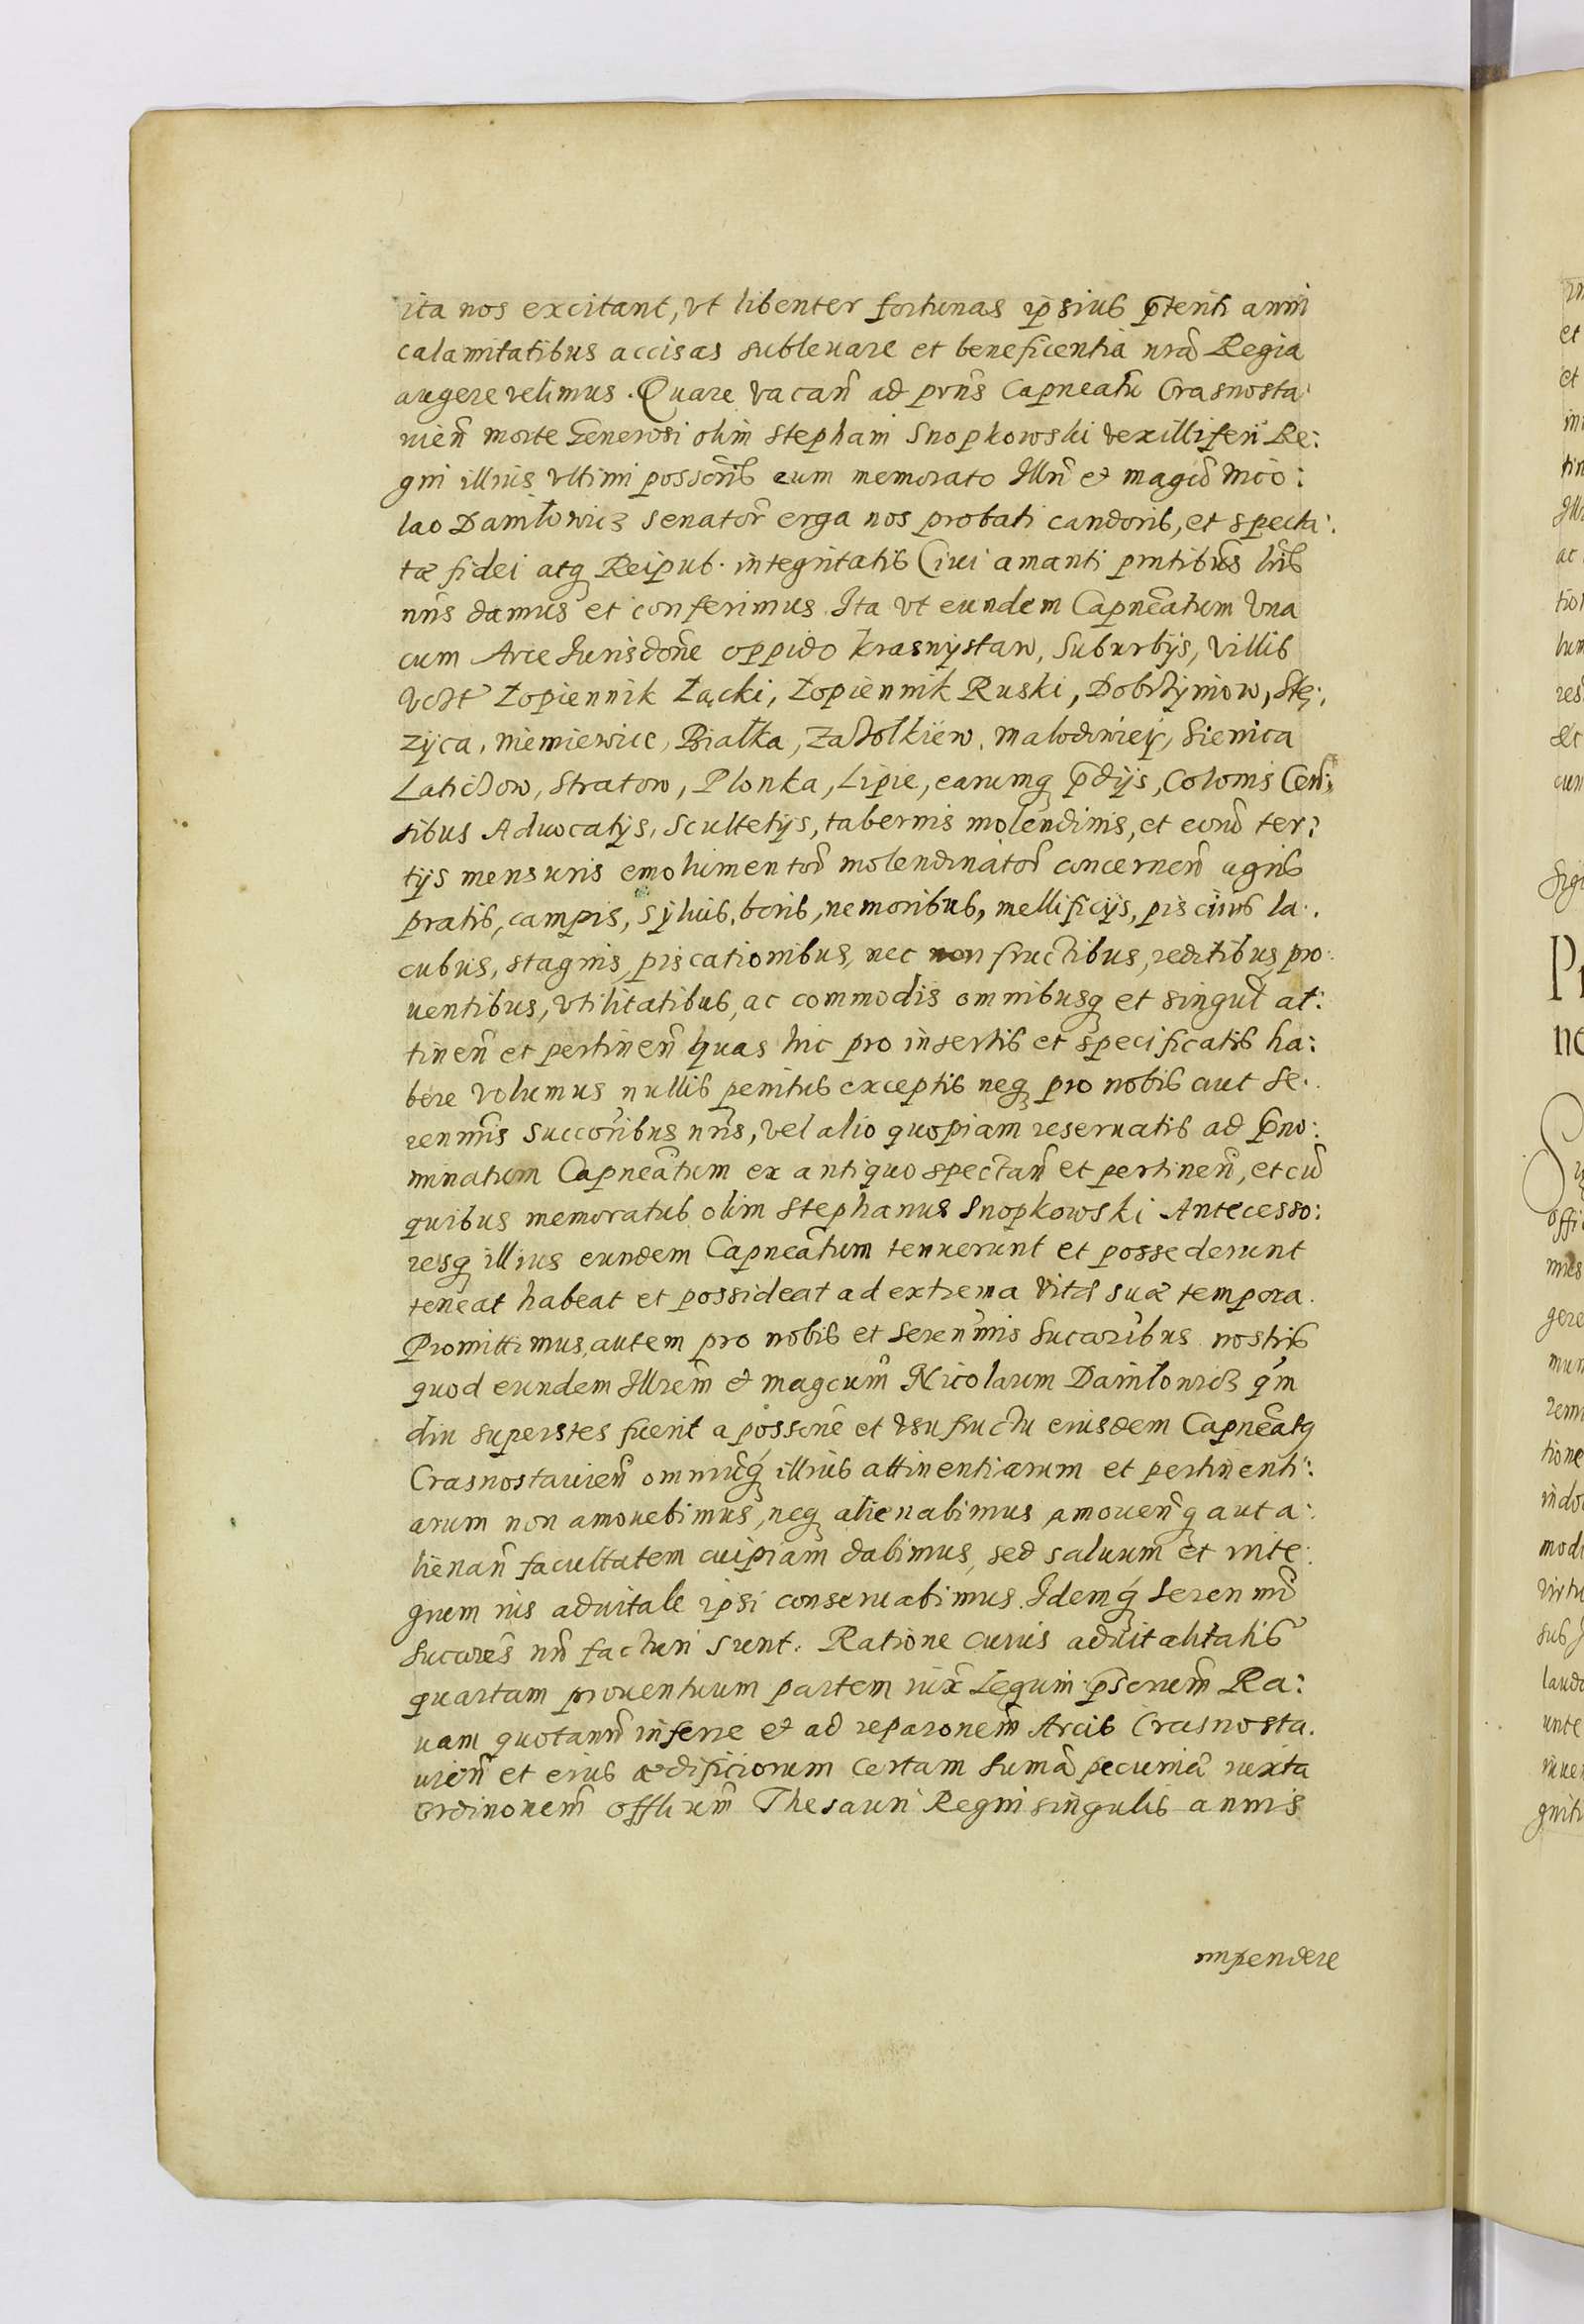 ita nos excitant, vt libenter fortunas ipsius p̄teriti anni
calamitatibus accisas subleuare et beneficentia nr̃a Regia
augere velimus. Quare vacan̄ ad prn̄s Capneatū Crasnosta:
uien̄ morte Generosi olim Stephani Snopkowski vexilliferi Re:
gni illius vltimi possōris eum memorato Illri et magco Nico:
lao Daniłowicz Senatori erga nos probati candoris, et specta:
tæ fidei atq Reipub. integritatis Ciui amanti prntibus lris
nris damus et conferimus Ita vt eundem Capneatum vna
cum Arce Jurisdone oppido Krasnystaw, Suburbijs, Villis
vdt Łopiennik Łącki, Łopiennik Ruski, Dobrzyniow, Stę:
zyca, Niemiewice, Białka, Zażołkiew, Malodiwiey, Sienica
Latichow, Stratow, Plonka, Lipie, earumq p̄dijs, Colonis Cen:
sibus Aduocatijs, Scultetijs, tabernis molendinis, et eorū ter:
tijs mensuris emolumentorū molendinatorū concernen̄ agris
pratis, campis, syluis, boris, nemoribus, mellificijs, piscinis la:
cubus, stagnis, piscationibus, nec non fructibus, reditibus, pro:
uentibus, vtilitatibus, ac commodis omnibusq et singul at:
tinen̄ et pertinen̄ quas hic pro insertis et specificatis ha:
bere volumus nullis penitus exceptis neq pro nobis aut Se:
renmis Succoribus nris, vel alio quopiam reseruatis ad p̄no:
minatum Capneatum ex antiquo spectan̄ et pertinen̄, et cū
quibus memoratus olim Stephanus Snopkowski Antecesso:
resq illius eundem Capneatum tenuerunt et possederunt
teneat habeat et possideat ad extrema vitæ suæ tempora.
Promittimus, autem pro nobis et Serenmis Sucoribus nostris
quod eundem Illrem et magcum Nicolaum Daniłowicz qm
diu superstes fuerit a possone et vsufructu eiusdem Capneatq
Crasnostauien̄ omniūq illius attinentiarum et pertinenti:
arum non amouebimus, neq alienabimus amouen̄q aut a:
lienan̄ facultatem cuipiam dabimus, sed saluum et inte:
grum ius aduitale ipsi conseruabimus. Idemq Serenmi
Sucores nri facturi sunt. Ratione cuius aduitalitatis
quartam prouentuum partem iux Legum p̄scriptum Ra:
uam quotannis inferre et ad reparonem Arcis Crasnosta.
uien̄ et eius ædificiorum certam Sumā pecuniā iuxta
ordinonem offlium Thesauri Regni singulis annis
impendere